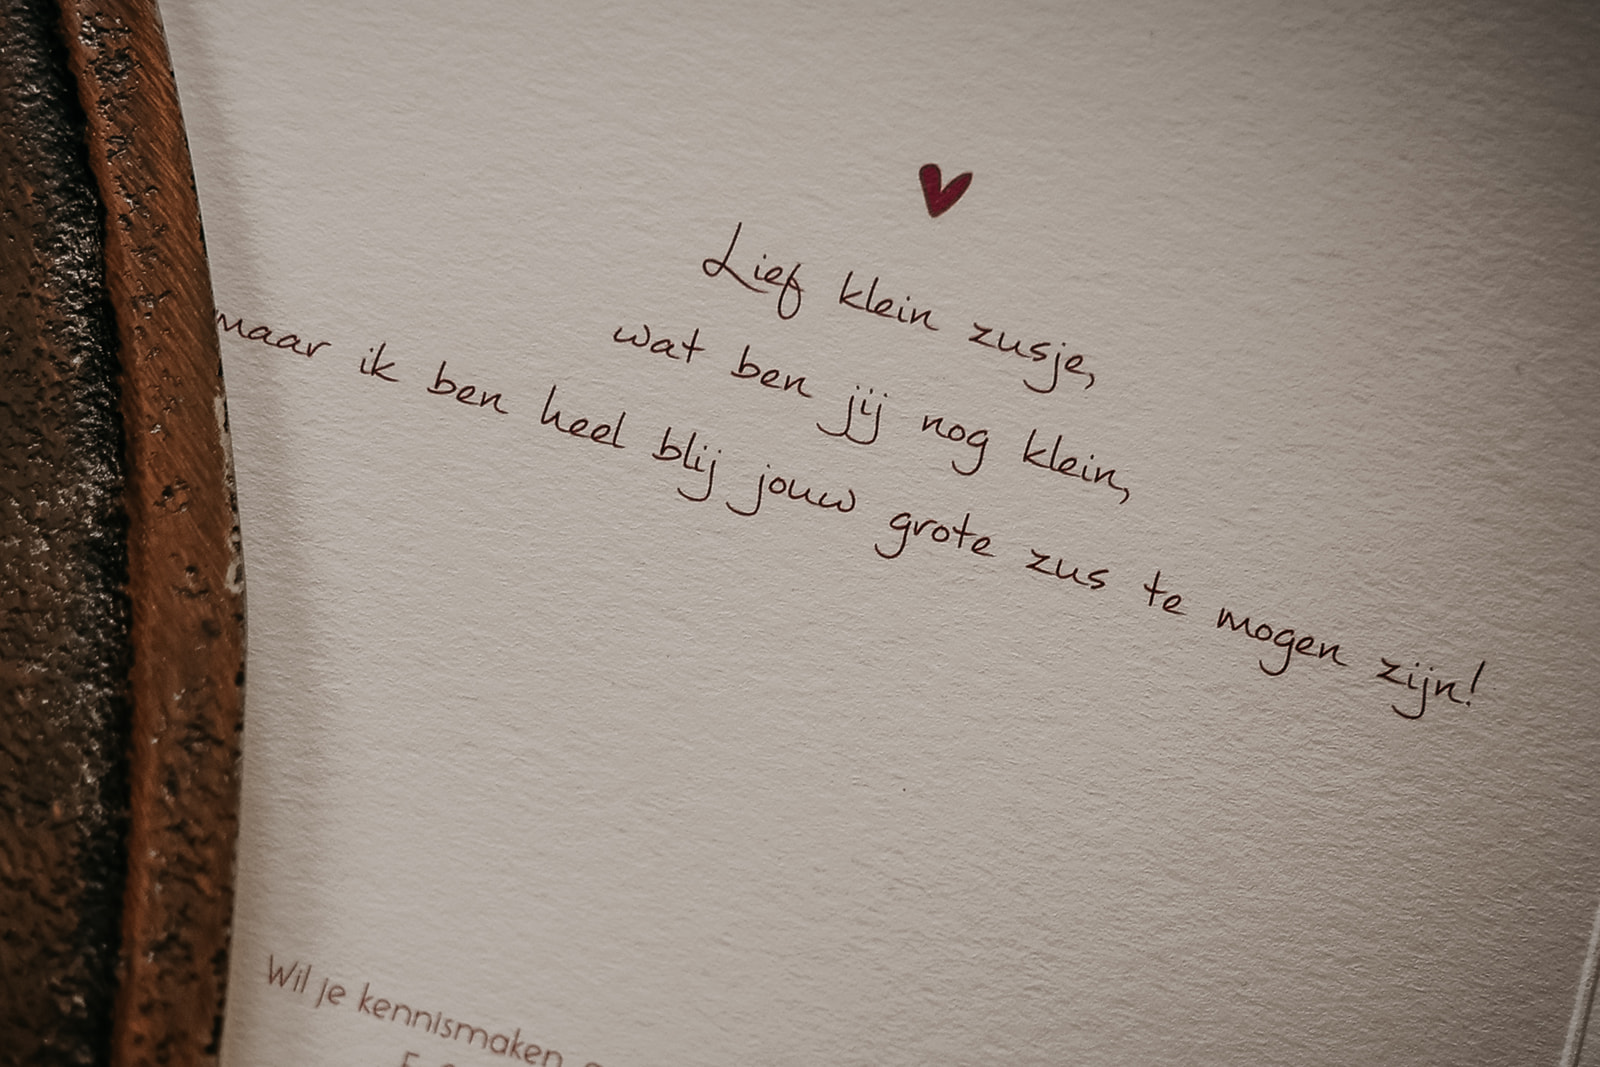 Lief klein zusje,
wat ben jij nog klein,
maar ik ben heel blij jouw grote zus te mogen zijn!
Wil je kennismaken